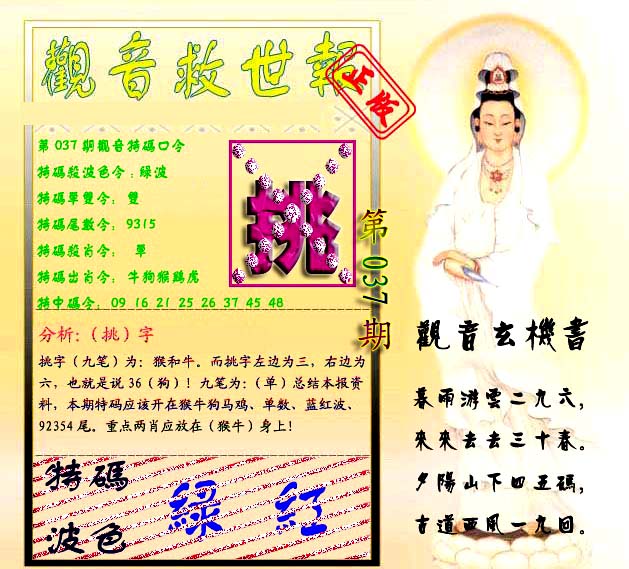 觀音救世報
正版
第037期觀音特碼口令
特碼殺波色令：綠波
特碼單雙令：雙
特碼尾數令：9315
特碼殺肖令：單
特碼出肖令：牛狗猴鷄虎
特中碼令：09 16 21 25 26 37 45 48
挑
第037期
分析:（挑）字
挑字（九笔）为：猴和牛。而挑字左边为三，右边为
六，也就是说 36（狗）！九笔为：（单）总结本报资
料，本期特码应该开在猴牛狗马鸡、单数、蓝红波、
92354 尾。重点两肖应放在（猴牛）身上！
特碼
波色
綠 紅
觀音玄機書
暮雨游雲二九六，
來來去去三十春。
夕陽山下四五碼，
古道西風一九回。